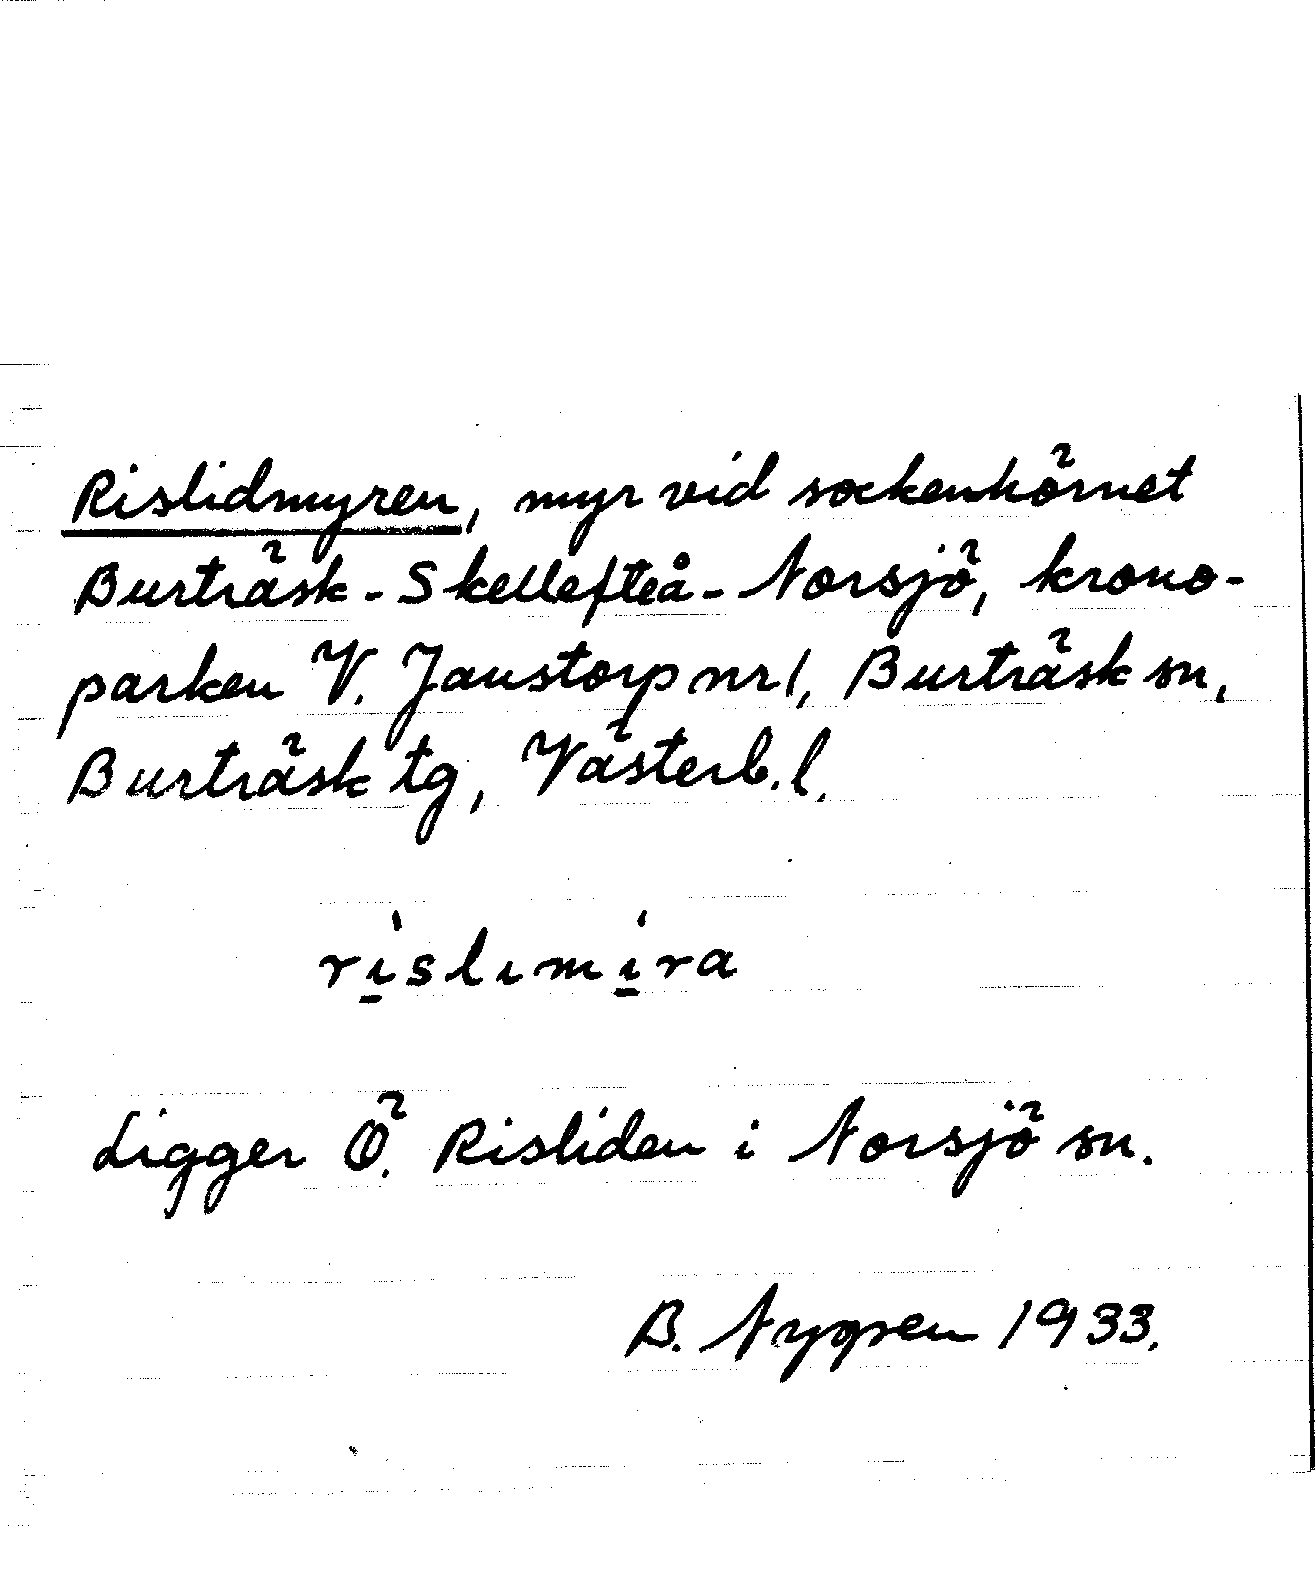 Rislidmyren, myr vid sockenhörnet
Burträsk - Skellefteå - Norsjö, krono-
parken V. Janstorp nr 1, Burträsk sn,
Burträsk tg, Västerb. l.
ri̲slımi̲ra
Ligger Ö. Risliden i Norsjö sn.
B. Nygren 1933.